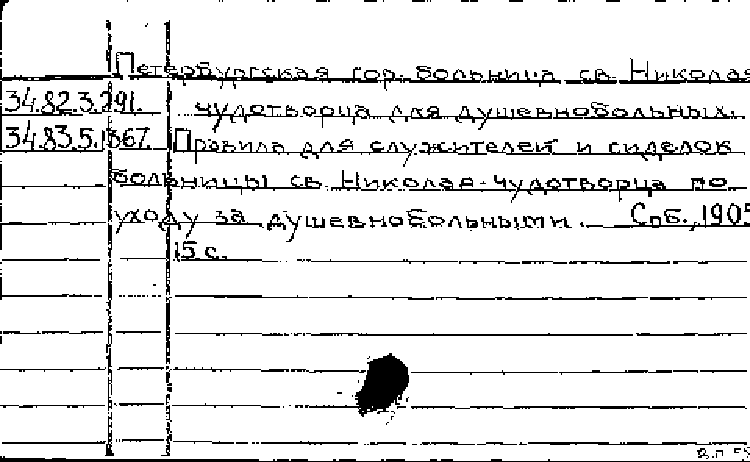 Петербургская гор. больница св. Николая
34.82.3.291. чудотворца для душевнобольных.
34.83.5.1367. Правила для служителей и сиделок
больницы св. Николая-чудотворца по
уходу за душевнобольными. Спб., 1905
15 с.